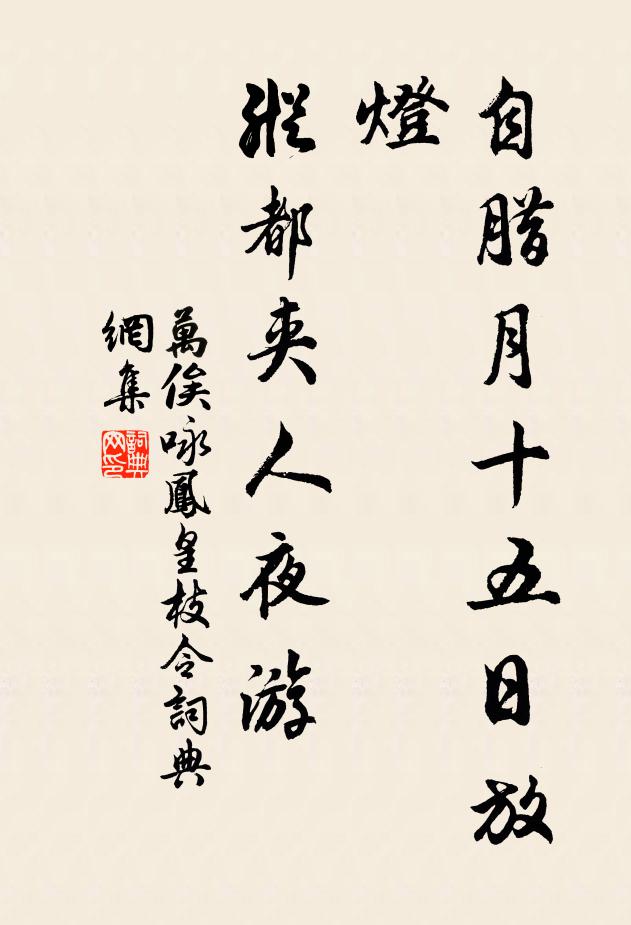 自腊月十五日放
燈
縱都夹人夜游
萬俟咏鳳皇枝令詞典
網集
詞典网印